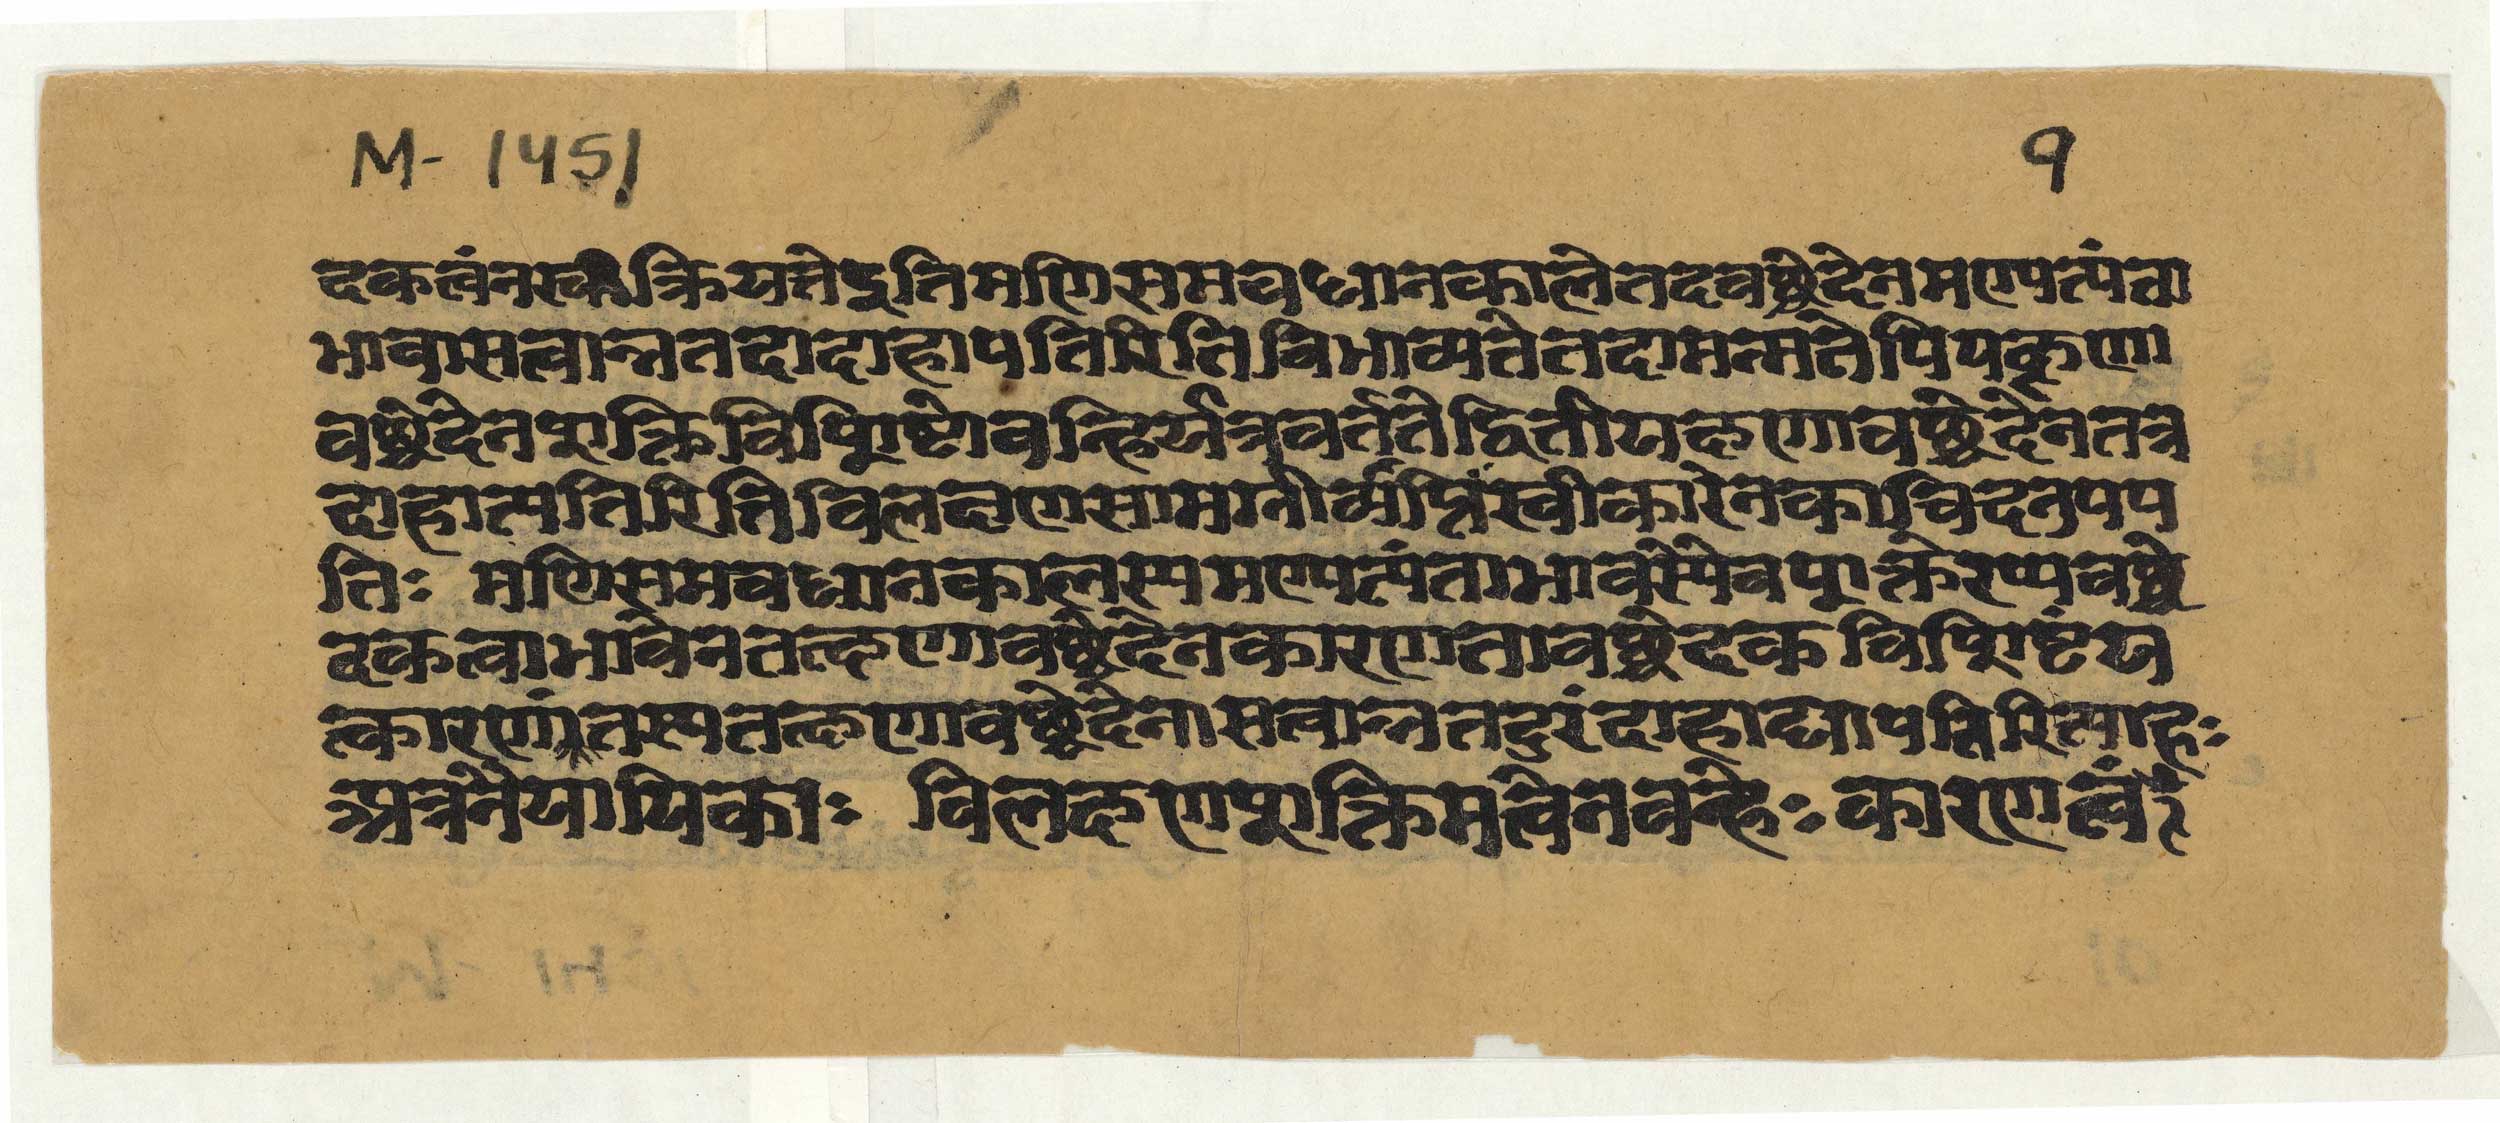 M- 1451
१
दकत्वंनस्वीक्रियतेइतिमणिसमवधानकालेतदवछेदेनमण्यत्यंता
भावासत्वान्नतदादाहापतिरितिविभाव्यतेतदामन्मतेपियक्षणा
वछेदेनशक्तिविशिष्टोवन्हिर्यत्रवर्ततेद्वितीयक्षणावछेदेनतत्र
दाहोत्पतिरितिविलक्षणसामग्रीव्याप्तिस्वीकारेनकाचिदनुपप
तिः मणिसमवधानकालस्यमण्यत्यंताभावस्येवशक्तेरप्यवछे
दकत्वाभावेनतत्क्षणावछेदेनकारणतावछेदकविशिष्टंय
त्कारणंतस्यतत्क्षणावछेदेनासत्वान्नतदुत्तरंदाहाद्यापत्तिरित्याहः
अत्रनैयायिकाः विलक्षणशक्तिमत्वेनवन्हेः कारणत्वं